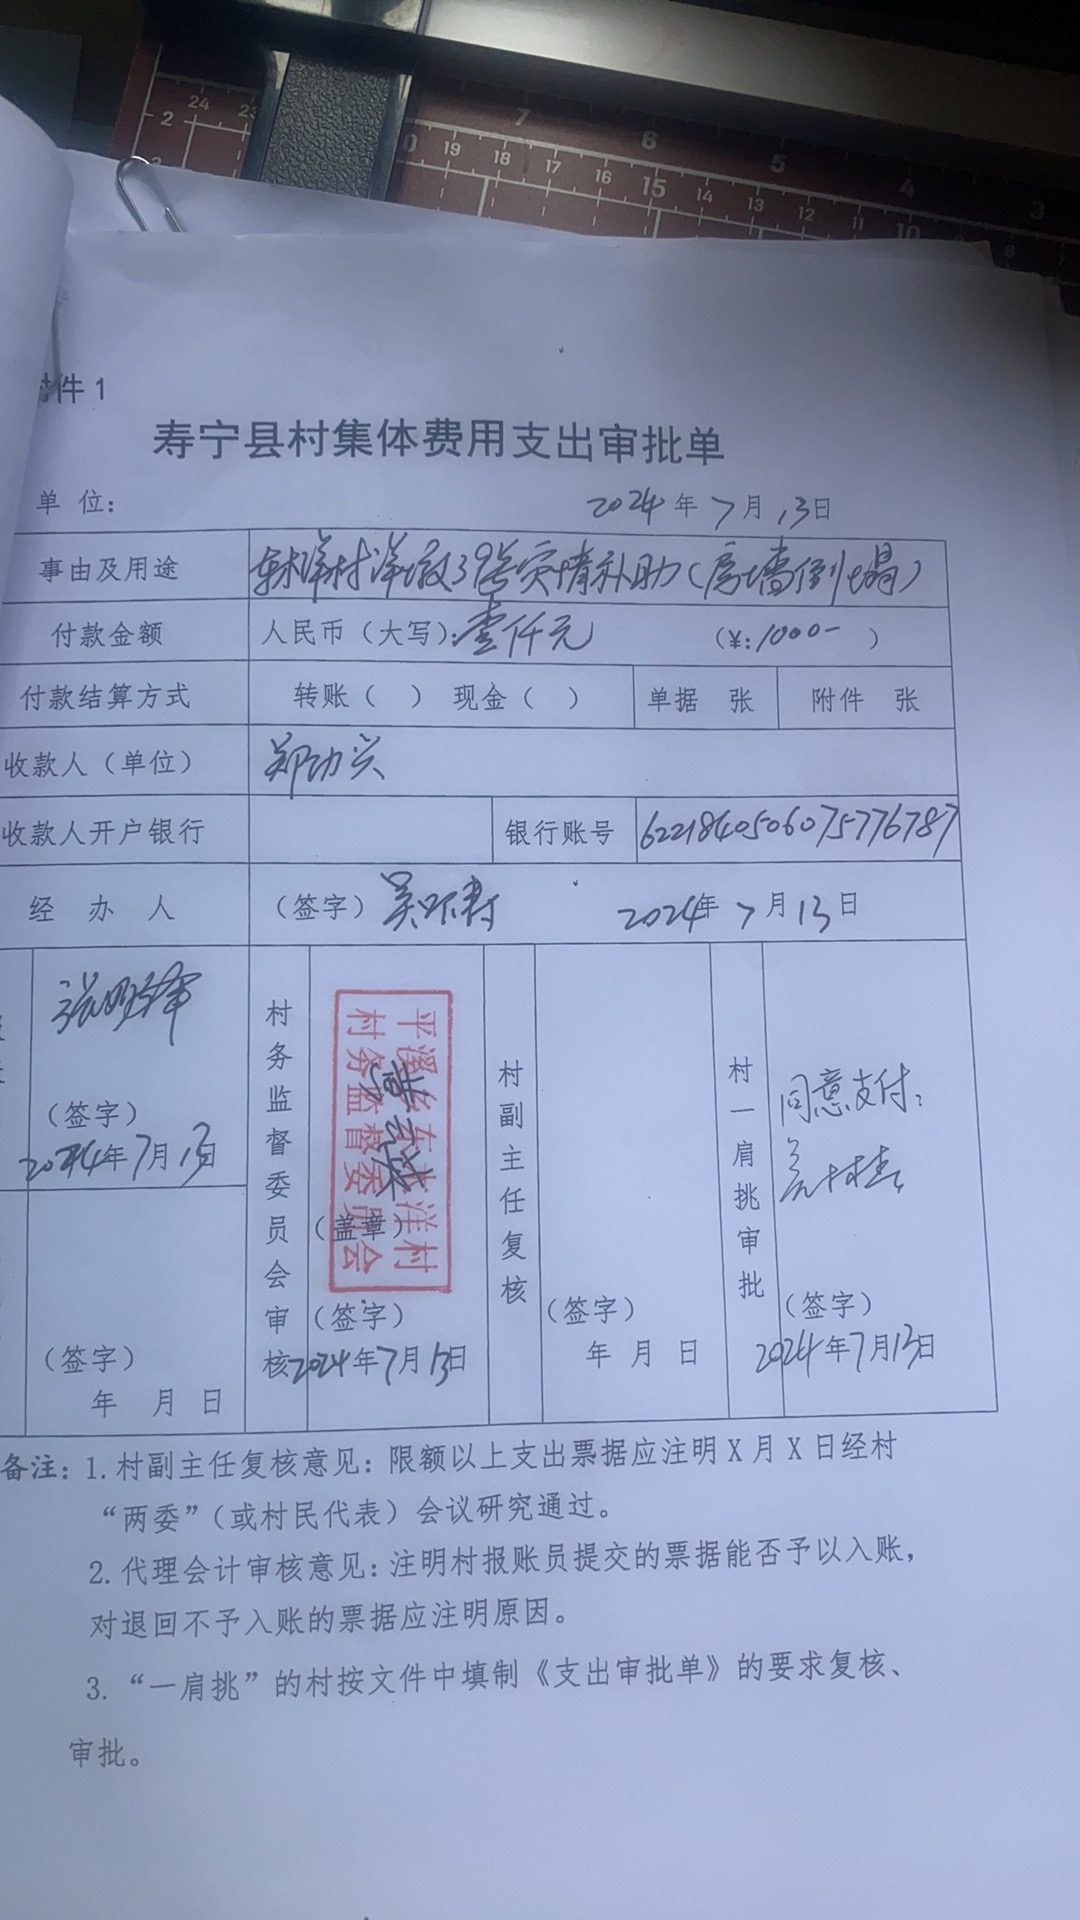 附件1
寿宁县村集体费用支出审批单
单 位： 2024年7月13日
事由及用途 东木洋村洋墩39号灾情补助（房墙倒塌）
付款金额 人民币（大写）：壹仟元 （¥：1000-）
付款结算方式 转账（ ） 现金（ ） 单据 张 附件 张
收款人（单位） 郑功兴
收款人开户银行 银行账号 6221840506075776787
经 办 人 （签字）吴 2024年7月13日
张明锋
（签字）
2024年7月13日
（签字）
年 月 日
村务监督委员会审核
平溪乡东木洋村
村务监督委员会
（盖章）
（签字）
2024年7月13日
村副主任复核
（签字）
年 月 日
村一肩挑审批
同意支付：
（签字）
2024年7月13日
备注：1.村副主任复核意见：限额以上支出票据应注明X月X日经村
“两委”（或村民代表）会议研究通过。
2.代理会计审核意见：注明村报账员提交的票据能否予以入账，
对退回不予入账的票据应注明原因。
3.“一肩挑”的村按文件中填制《支出审批单》的要求复核、
审批。